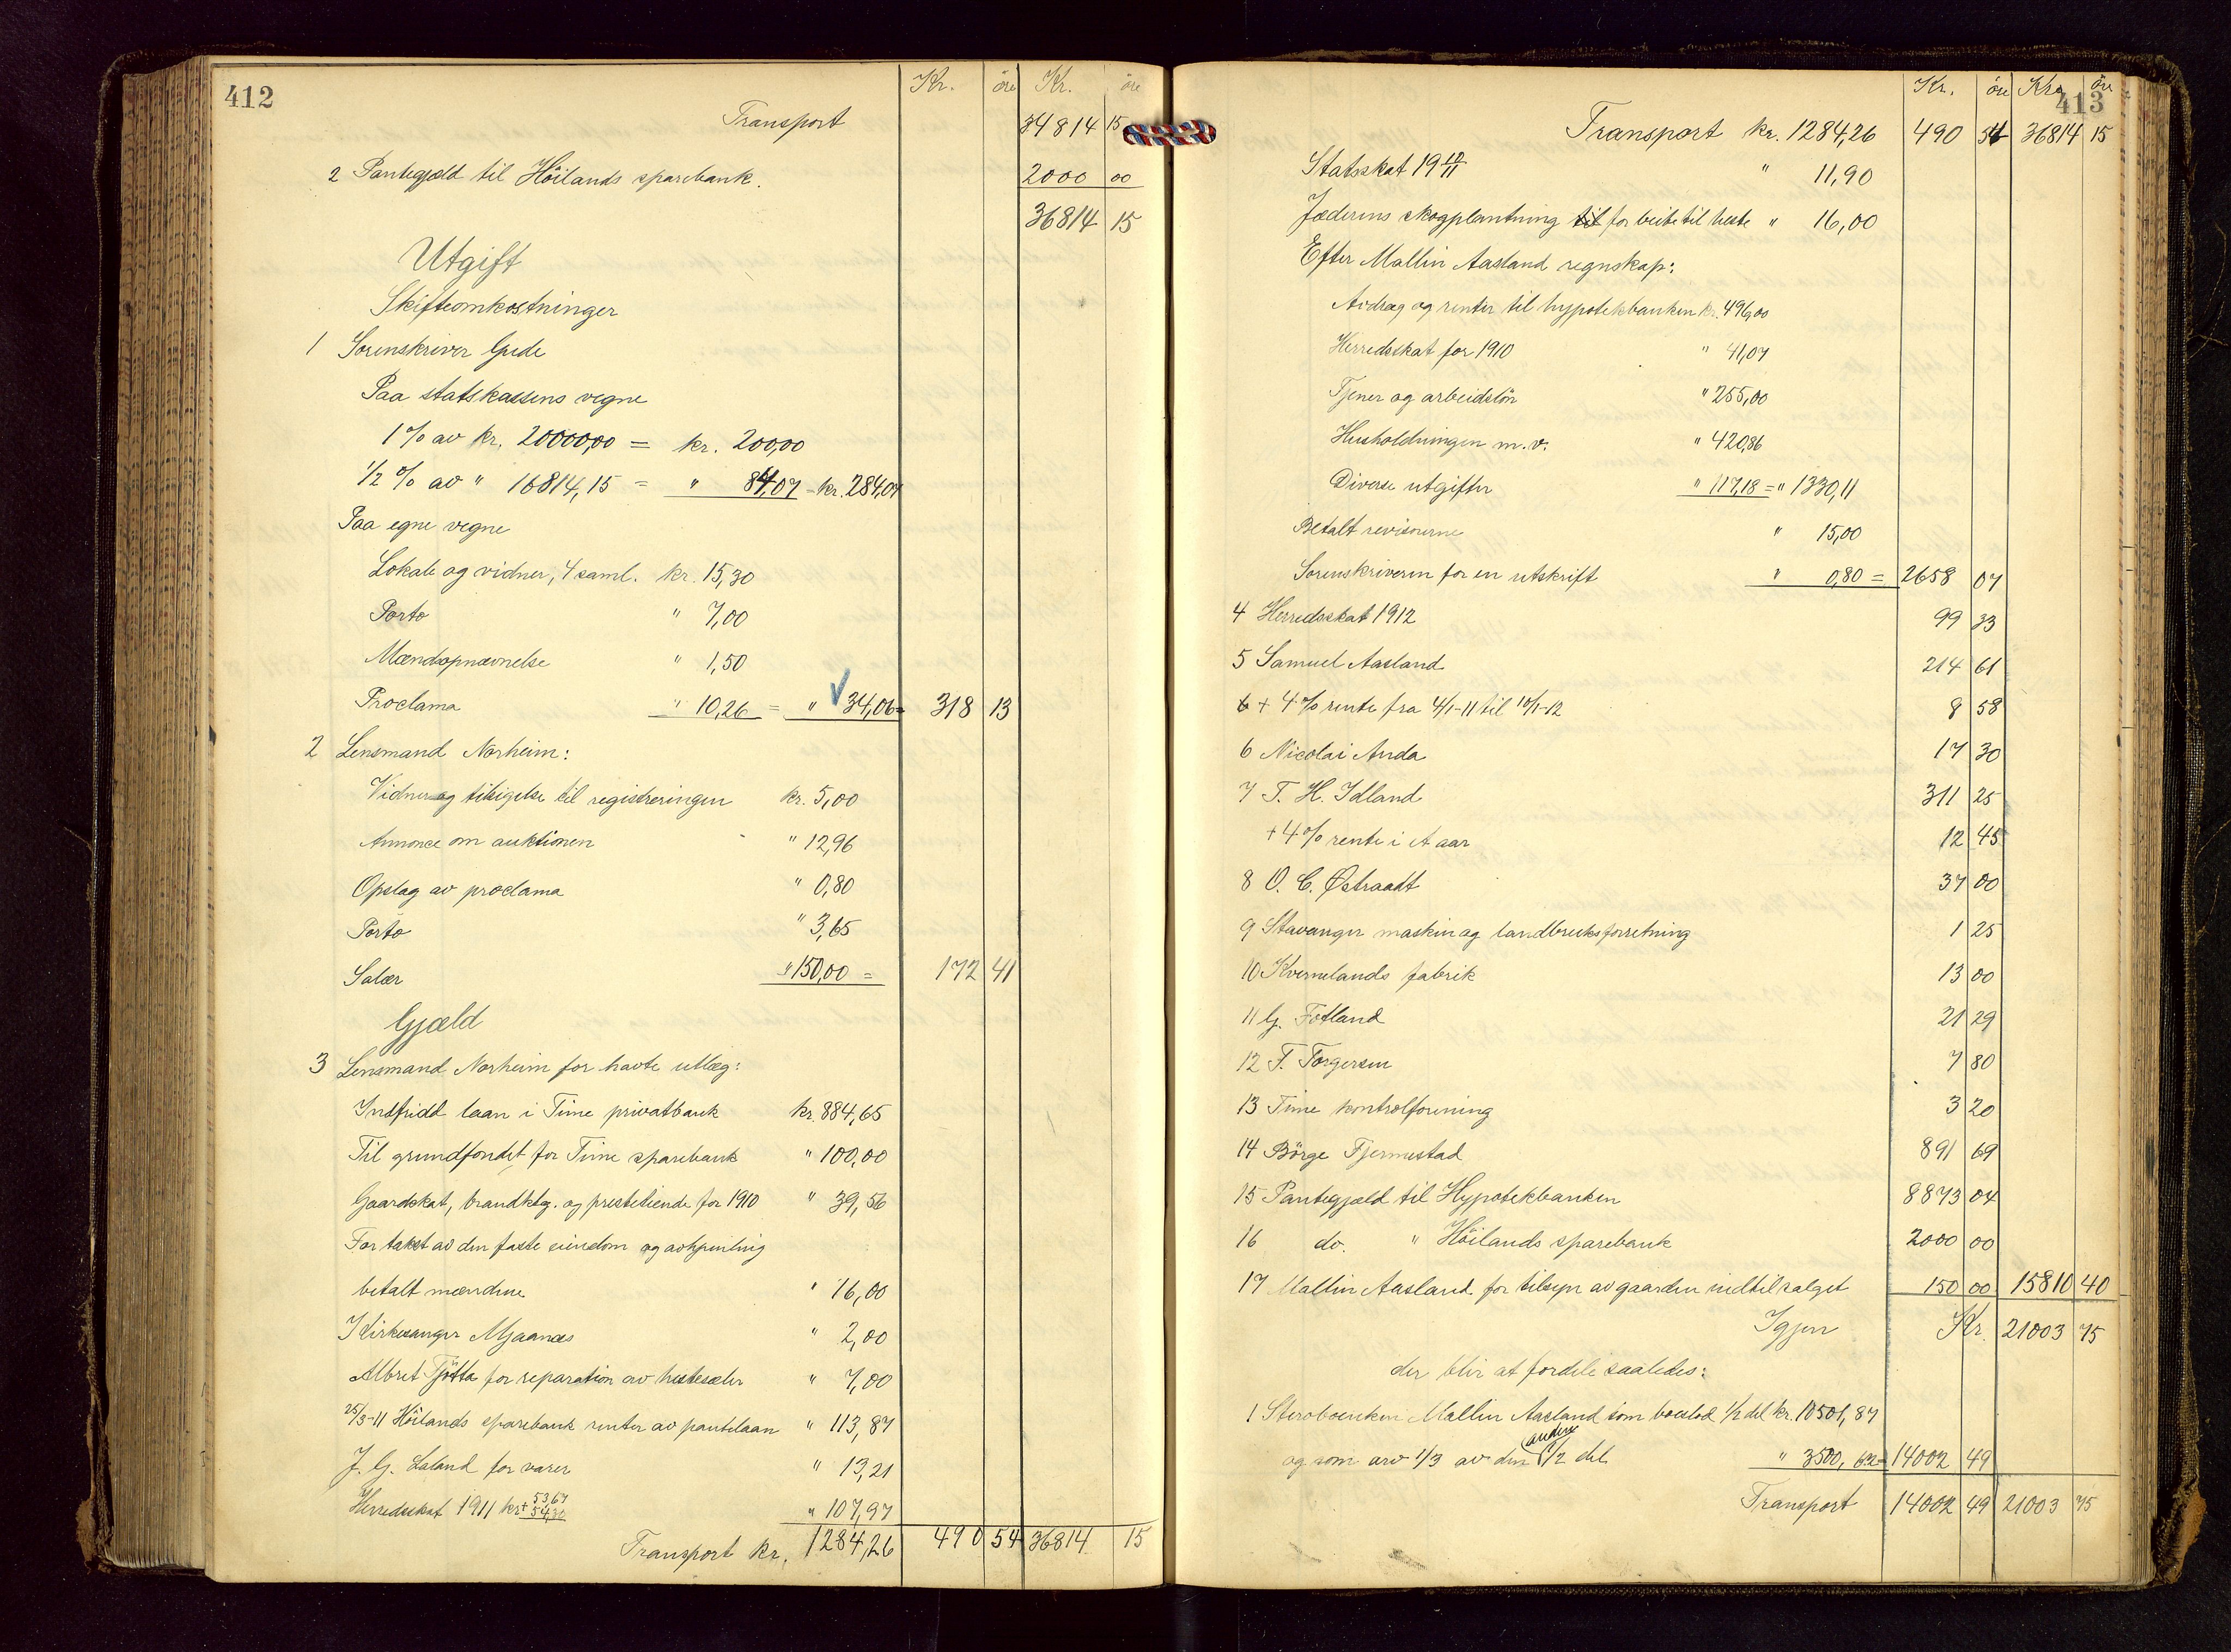 412
Kr. öre Kr. öre
Transport 34814 15
2 Pantegjæld til Höilands sparebank. 2000 00
36814 15
Utgift
Skifteomkostninger
1 Sorenskriver Gjede
Paa statskassens vegne
1% av kr. 20000,00 = kr. 200,00
1/2 % av " 16814,15 = " 84,07 = kr. 284,07
Paa egne vegne
Lokale og vidner, 4 saml. kr. 15,30
Porto " 7,00
Mændsopnævnelse " 1,50
Proclama " 10,26 = " 34,06 = 318 13
2 Lensmand Norheim:
Vidner og tilsigelse til registreringen kr. 5,00
Annonce om auktionen " 12,96
Opslag av proclama " 0,80
Porto " 3,65
Salær " 150,00 = 172 41
Gjæld
3 Lensmand Norheim for havte utlæg:
Indfridd laan i Time privatbank kr. 884,65
Til grundfondet for Time sparebank " 100,00
Gaardskat, brandktg. og prestetiende for 1910 " 39,56
For takst av den faste eiendom og
betalt mændene " 16,00
Kirkesanger Mjaanes " 2,00
Albret Tjötta for reparation av hesteseler " 7,00
25/3-11 Höilands sparebank renter av pantelaan " 113,87
J. G. Laland for varer " 13,21
Herredsskat 1911 kr 53,67 + 54,30 " 107,97
Transport kr. 1284,26 490 54 36814 15
413
Kr. öre Kr. öre
Transport kr. 1284,26 490 54 36814 15
Statsskat 19 10/11 " 11,90
Jæderens skogplantning til for beite til heste " 16,00
Efter Mallin Aasland regnskap:
Avdrag og renter til hypotekbanken kr. 496,00
Herredsskat for 1910 " 41,07
Tjener og arbeidslön " 255,00
Husholdningen m.v. " 420,86
Diverse utgifter " 117,18 = " 1330,11
Betalt revisorerne " 15,00
Sorenskriveren for en utskrift " 0,80 = 2658 07
4 Herredsskat 1912 99 33
5 Samuel Aasland 214 61
6 + 4% rente fra 4/1-11 til 10/1-12 8 58
6 Nicolai Anda 17 30
7 T. H. Idland 311 25
+ 4% rente i et aar 12 45
8 O. C. Østraadt 37 00
9 Stavanger maskin og landbruksforretning 1 25
10 Kvernelands fabrik 13 00
11 G. Fotland 21 29
12 T. Torgersen 7 80
13 Time kontrolforening 3 20
14 Börge Fjermestad 891 69
15 Pantegjæld til Hypotekbanken 8873 04
16 do. " Höilands sparebank 2000 00
17 Mallin Aasland for tilsyn av gaarden indtil salget 150 00 15810 40
Igjen Kr. 21003 75
der blir at fordele saaledes:
1 Sterboenken Mallin Aasland som boeslod 1/2 del kr. 10501,87
og som arv 1/3 av den andre 1/2 del " 3500,62 = 14002 49
Transport 14002 49 21003 75